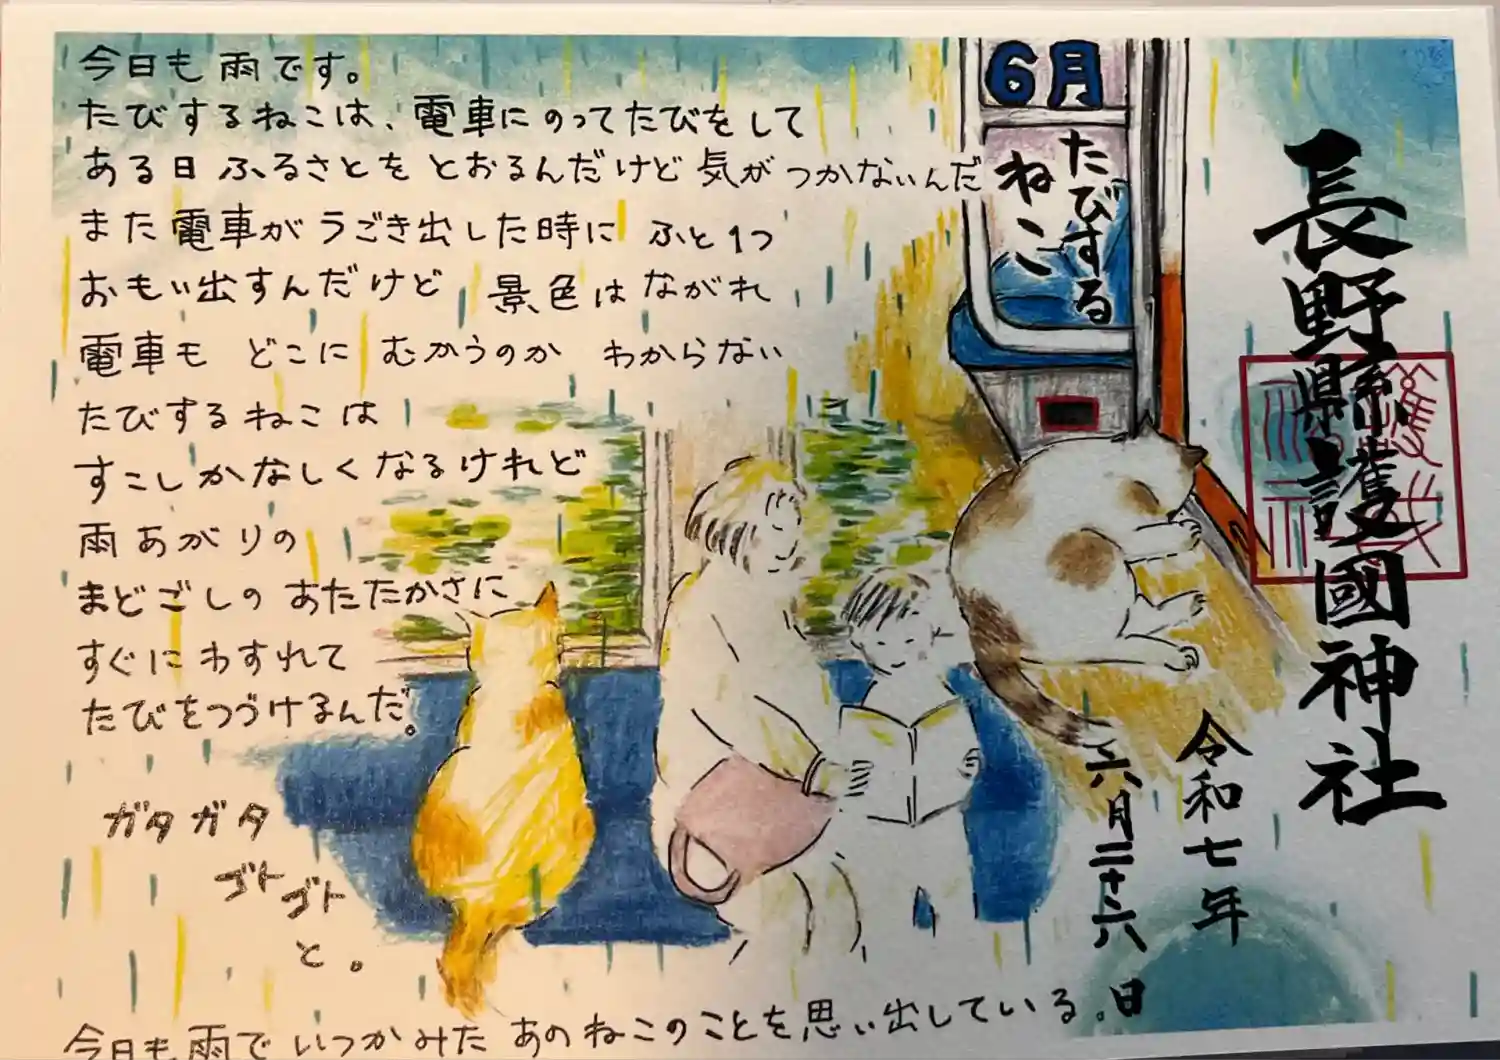 今日も雨です。
たびするねこは、電車にのってたびをして
ある日ふるさとをとおるんだけど気がつかないんだ
また電車がうごき出した時に ふと1つ
おもい出すんだけど 景色はながれ
電車も どこに むかうのか わからない
たびするねこは
すこしかなしくなるけれど
雨あがりの
まどごしの あたたかさに
すぐにわすれて
たびをつづけるんだ。
ガタガタ
ゴトゴト
と。
今日も雨でいつかみた あのねこのことを思い出している。
6月
たびする
ねこ
長野縣護國神社
令和七年
六月二十六日